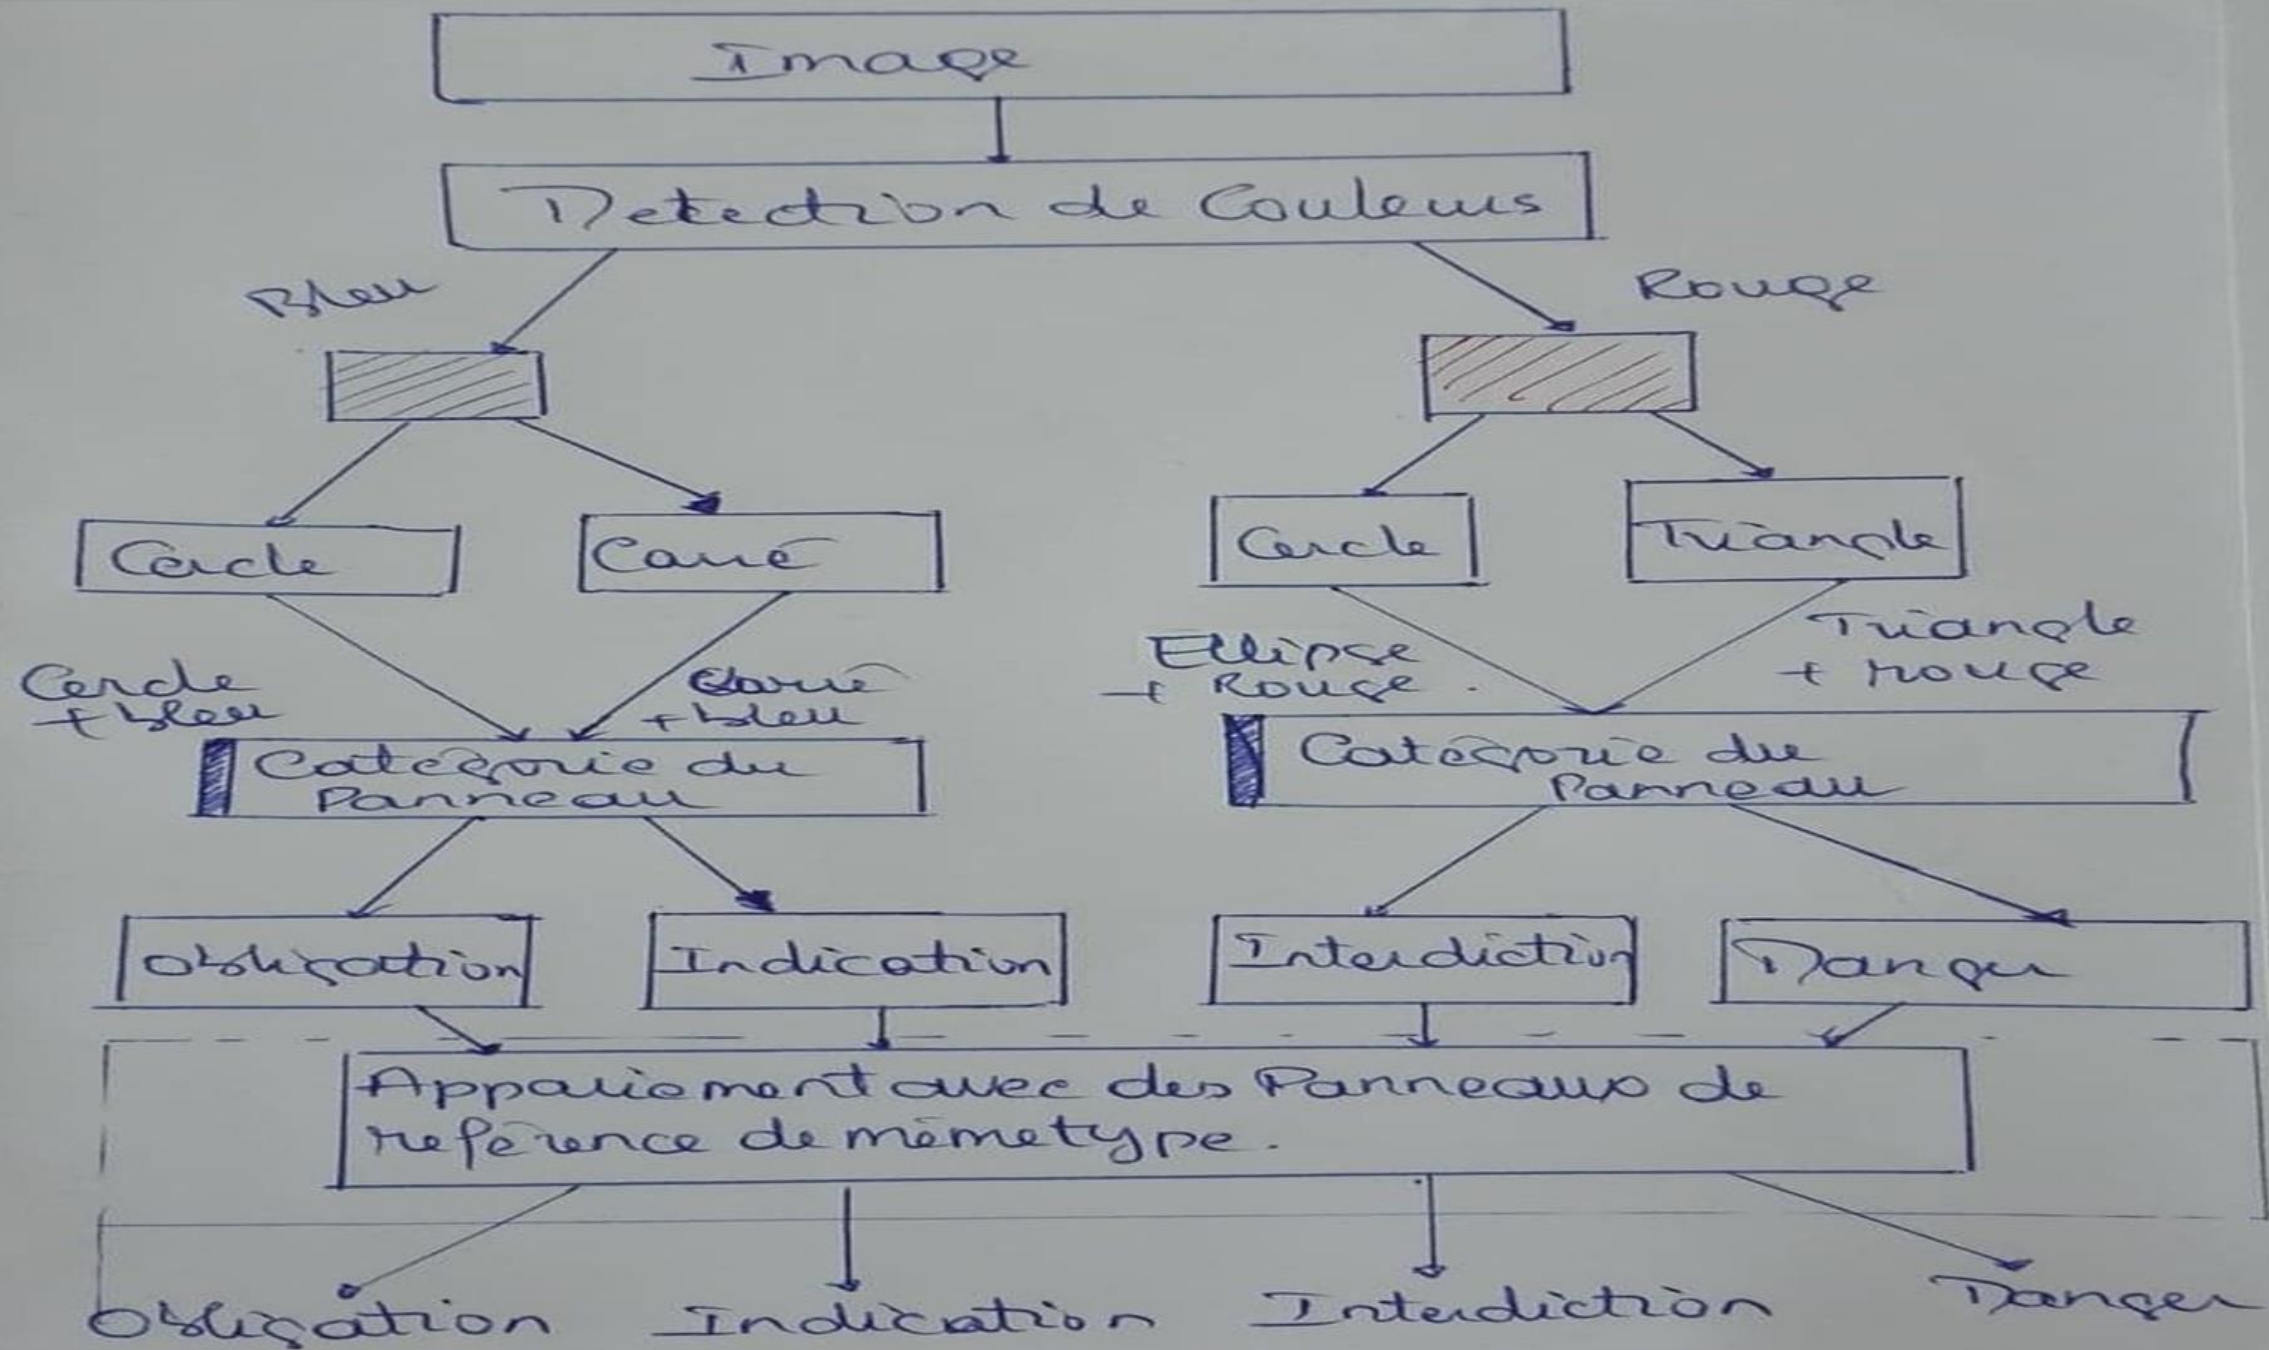 Image
Detection de Couleurs
Bleu
Rouge
Cercle
Carré
Cercle
Triangle
Cercle
+ bleu
Carré
+ bleu
Ellipse
+ Rouge.
Triangle
+ rouge
Catégorie du
Panneau
Catégorie du
Panneau
Obligation
Indication
Interdiction
Danger
Appariement avec des Panneaux de
reférence de même type.
Obligation
Indication
Interdiction
Danger